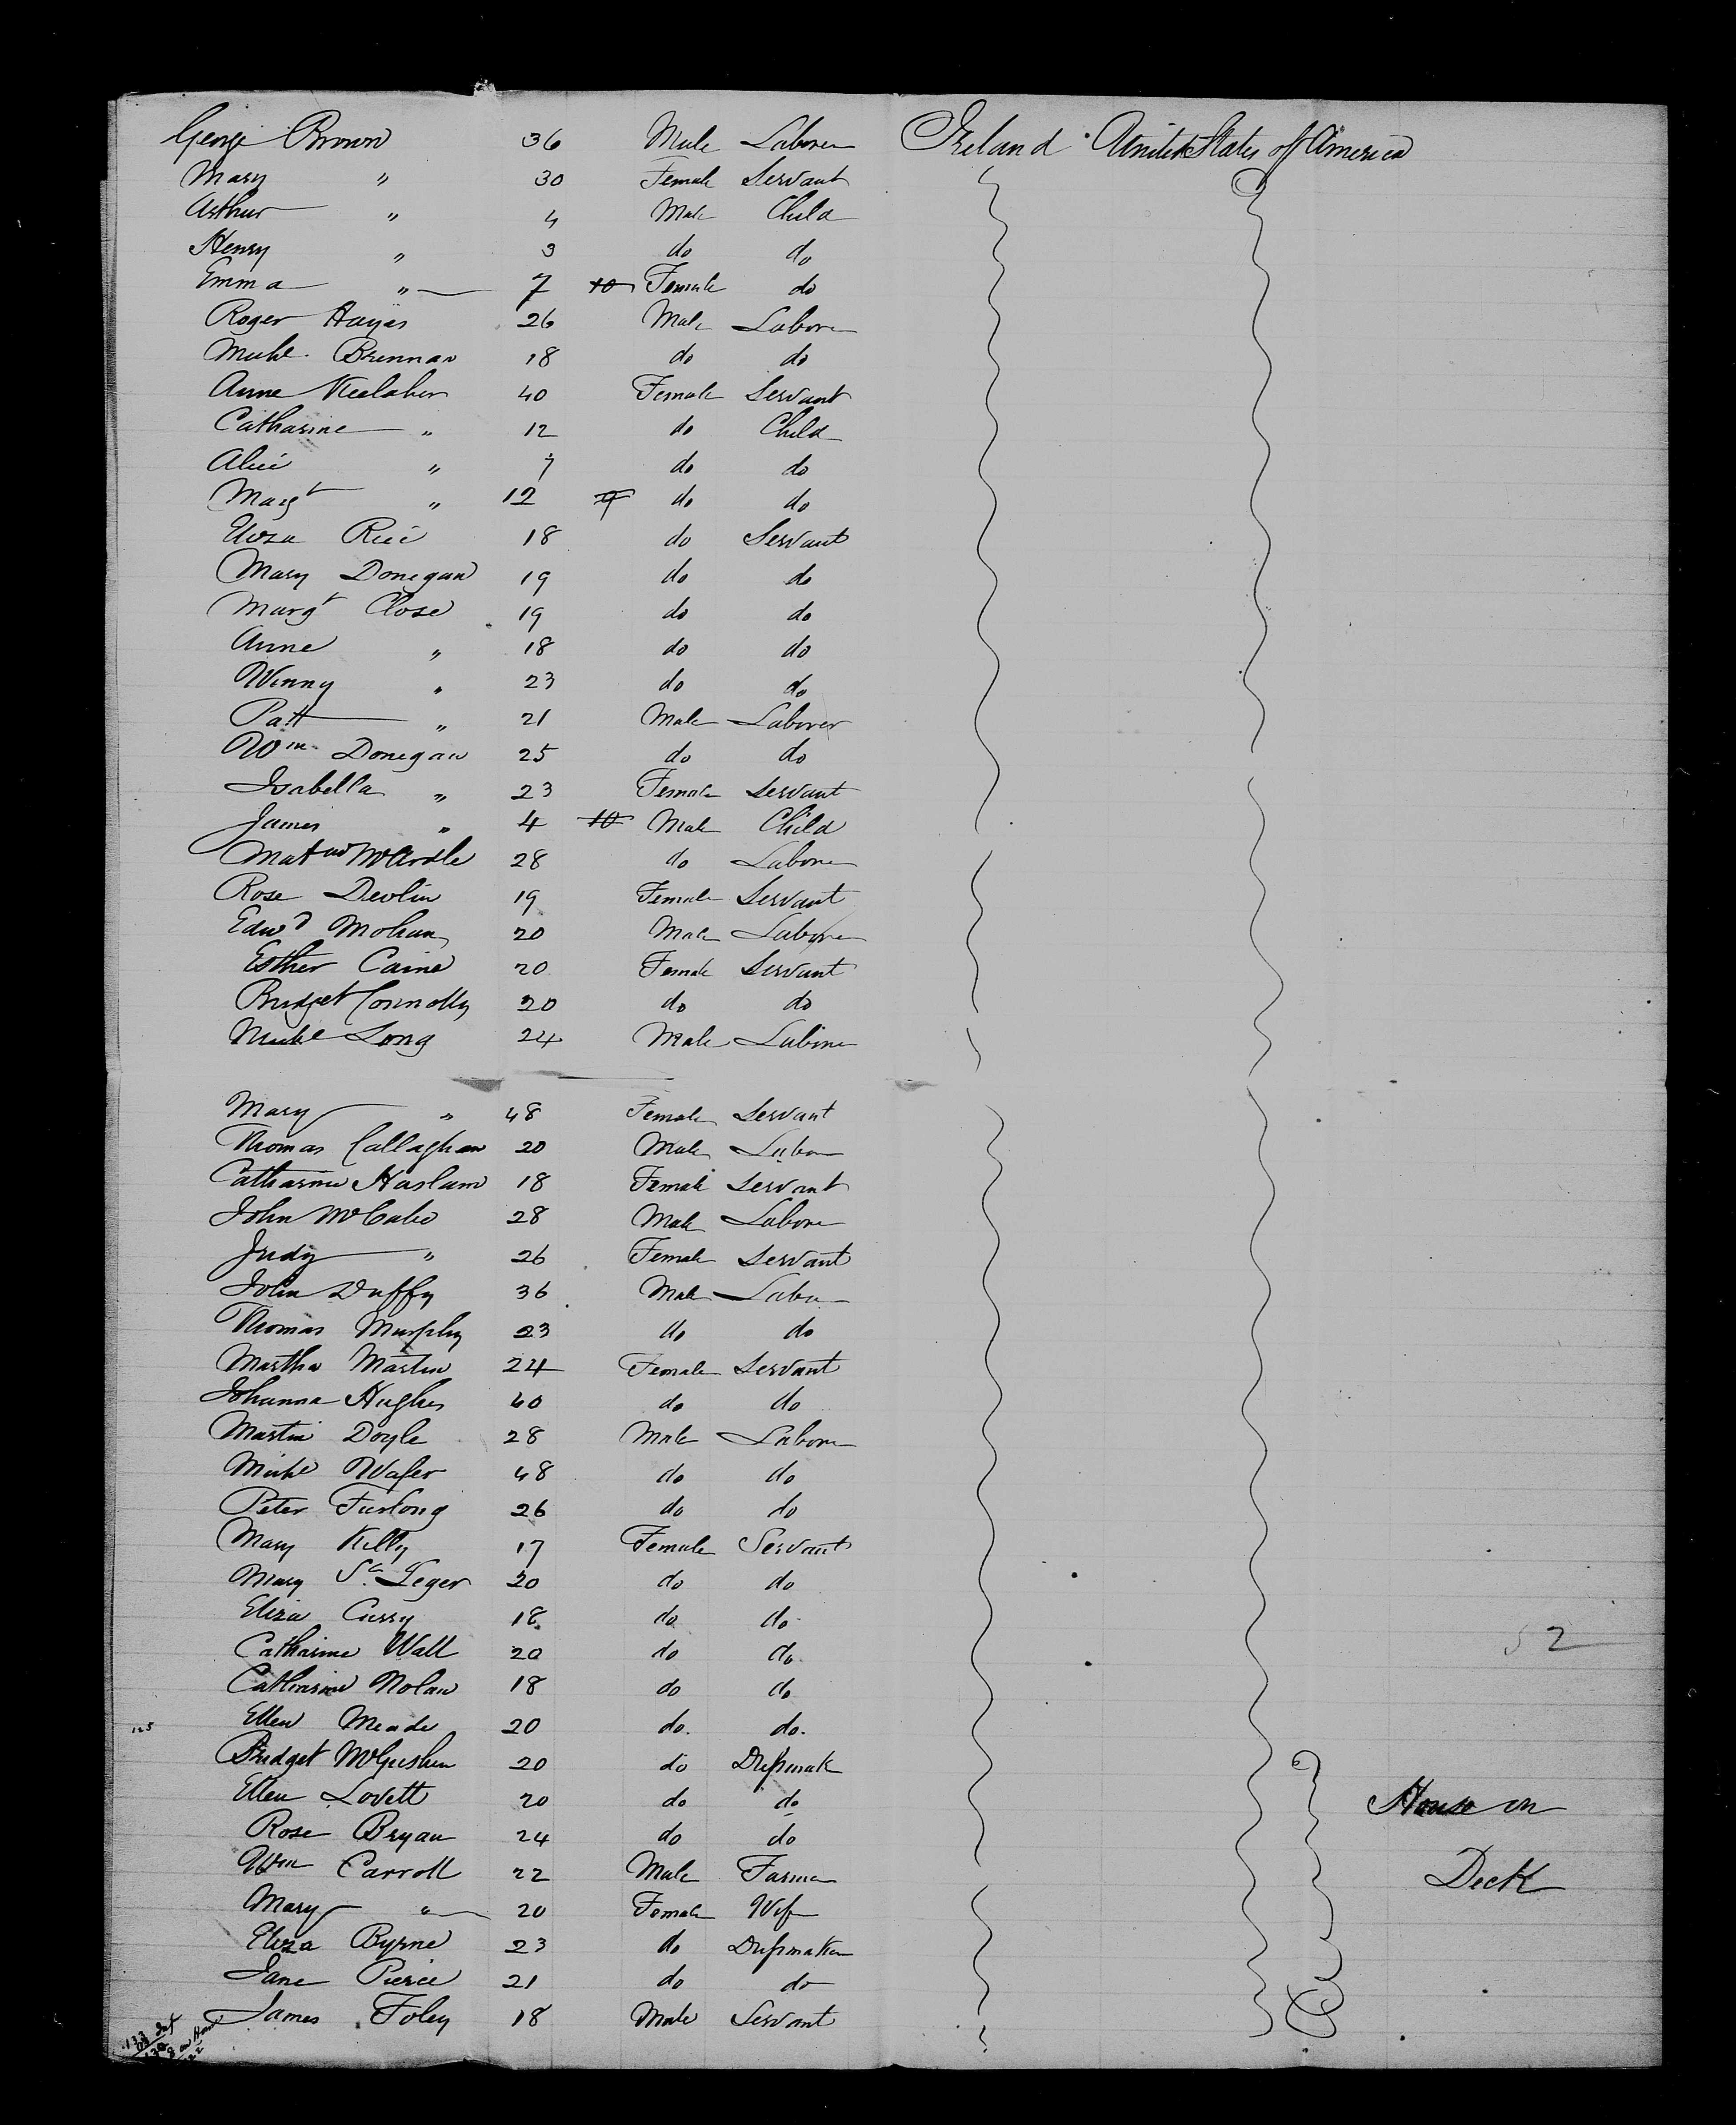 George Brown 36 Male Laborer Ireland United States of America
Mary " 30 Female Servant
Arthur " 4 Male Child
Henry " 3 do do
Emma " 7 10 Female do
Roger Hayes 26 Male Laborer
Michl. Brennan 18 do do
Anne Keelaher 40 Female Servant
Catharine " 12 do Child
Alice " 7 do do
Margt " 12 9 do do
Eliza Rice 18 do Servant
Mary Donegan 19 do do
Margt Close 19 do do
Anne " 18 do do
Winny " 23 do do
Patt " 21 Male Laborer
Wm. Donegan 25 do do
Isabella " 23 Female Servant
James " 4 10 Male Child
Matw McArdle 28 do Laborer
Rose Devlin 19 Female Servant
Edwd Mohan 20 Male Laborer
Esther Caine 20 Female Servant
Bridget Connolly 20 do do
Michl Long 24 Male Laborer
Mary " 48 Female Servant
Thomas Callaghan 20 Male Labor
Catharine Haslam 18 Female Servant
John McCabe 28 Male Laborer
Judy " 26 Female Servant
John Duffy 36 Male Labor
Thomas Murphy 23 do do
Martha Martin 24 Female Servant
Johanna Hughes 60 do do
Martin Doyle 28 Male Laborer
Michl Wafer 48 do do
Peter Furlong 26 do do
Mary Kelly 17 Female Servant
Mary St. Leger 20 do do
Eliza Curry 18 do do
Catharine Wall 20 do do
Catharine Nolan 18 do do
125 Ellen Meade 20 do. do.
Bridget 20 do Dressmak
Ellen Lovett 20 do do House on
Rose Bryan 24 do do
Wm Carroll 22 Male Farmer Deck
Mary " 20 Female Wife
Eliza Byrne 23 do Dressmaker
Jane Pierce 21 do do
James Foley 18 Male Servant